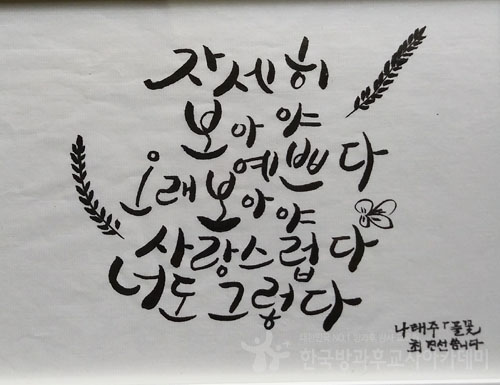 자세히
보아야
예쁘다
오래보아야
사랑스럽다
너도 그렇다
나태주「풀꽃」
최진선 씁니다
한국방과후교사아카데미